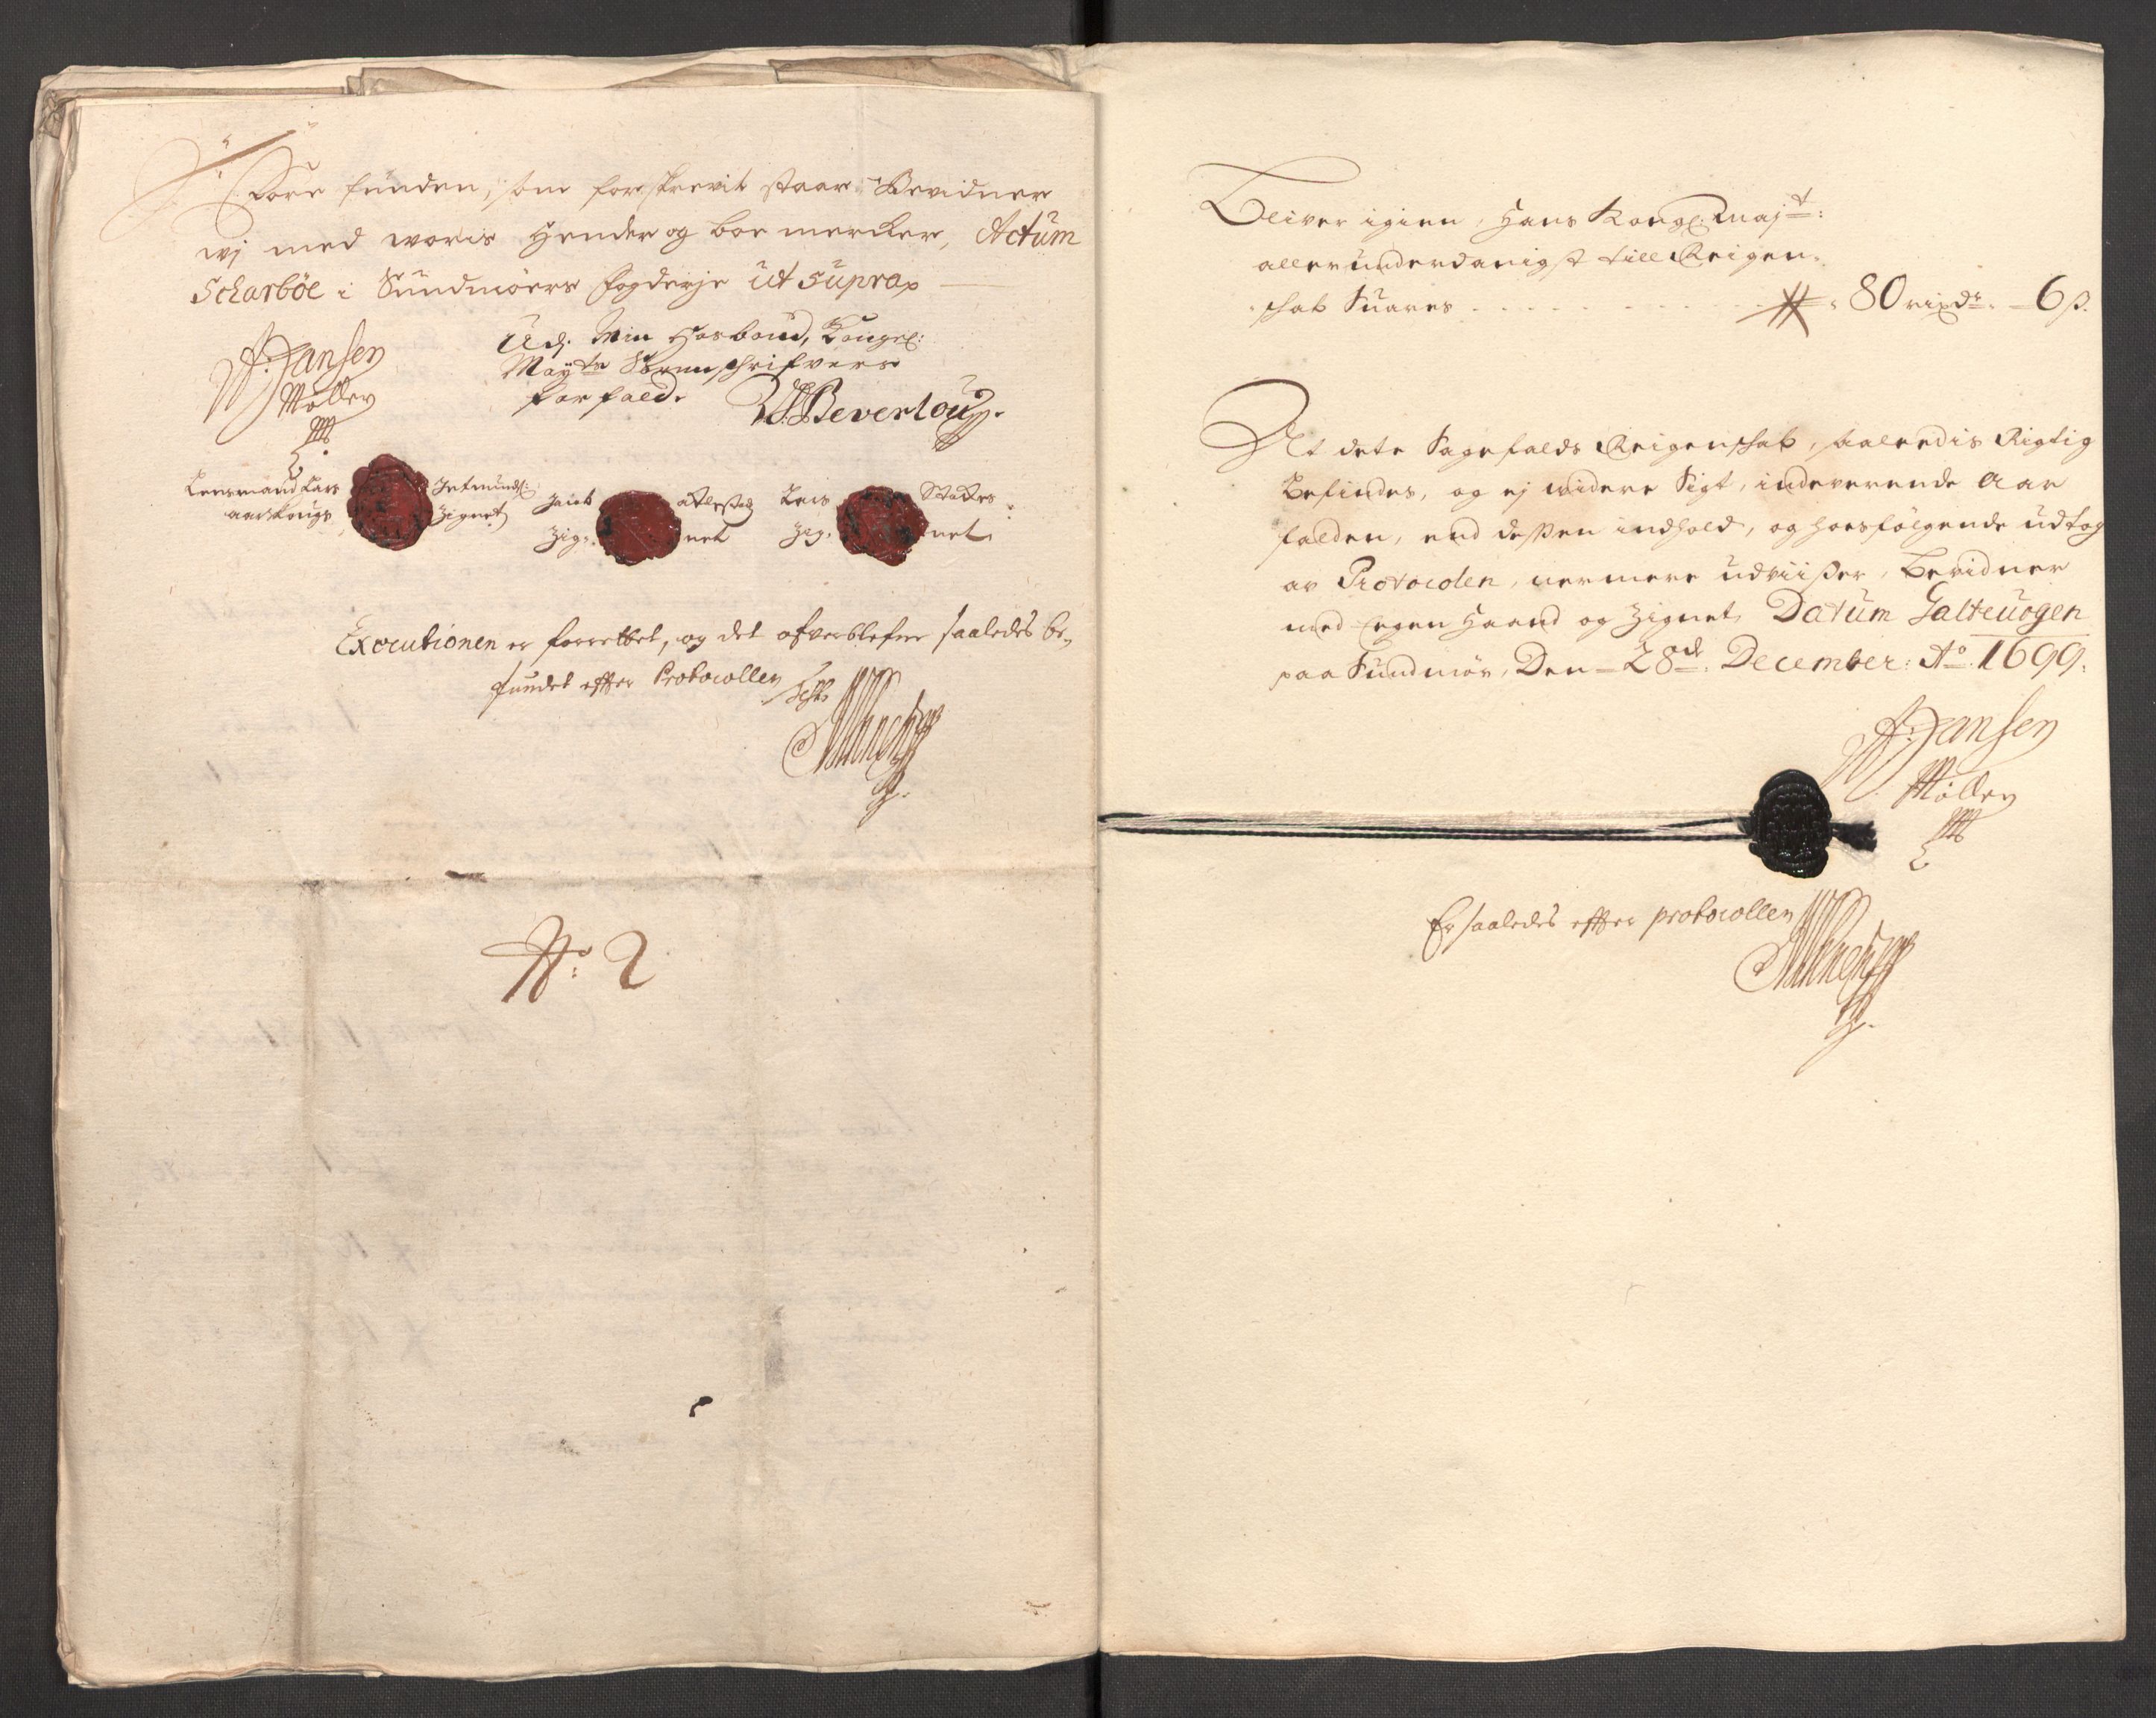 Vore funden, som forskrevit staar. Bevidner
wj med woris Hender og boe mercker, Actum
Scharböe i Sundmöers fogderje ut supra
Udj Min Hosbond, Kongel:
Mayts Sorenschrifvers
forfald.
W. Beverlou
A: Jansen
Möller
Lensmand Lars
Jetmunds:
Zignet
Jacob
Zig:
net
Lars
Zig.
Stockes
net
Executionen er forrettet, og det ofverblefne saaledes be-
fundet effter Protocollen
No: 2
Bliver igien, Hans Kongl: Majt:
allerunderdanigst till Reigen-
schab Suares 80 rixdr. 6 β.
At dete Sagefalds Reigenschab, saaledis Rigtig
befindes, og ej widere Sigt, indeverende Aar
falden, end dessen indhold, og hosfölgende udtog
av Protocolen, nermere udviisser, bevidner
med Eegen Haand og Zignet, Datum Galtevogen
paa Sundmör, Den 28de December: Ao. 1699.
A: Jansen
Möller
Er saaledes effter protocollen